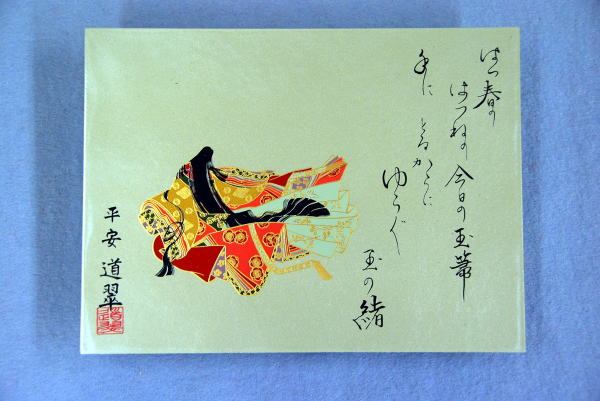 はつ春の
はつねの今日の玉箒
手にとるからに
ゆらぐ
玉の緒
平安 道翠